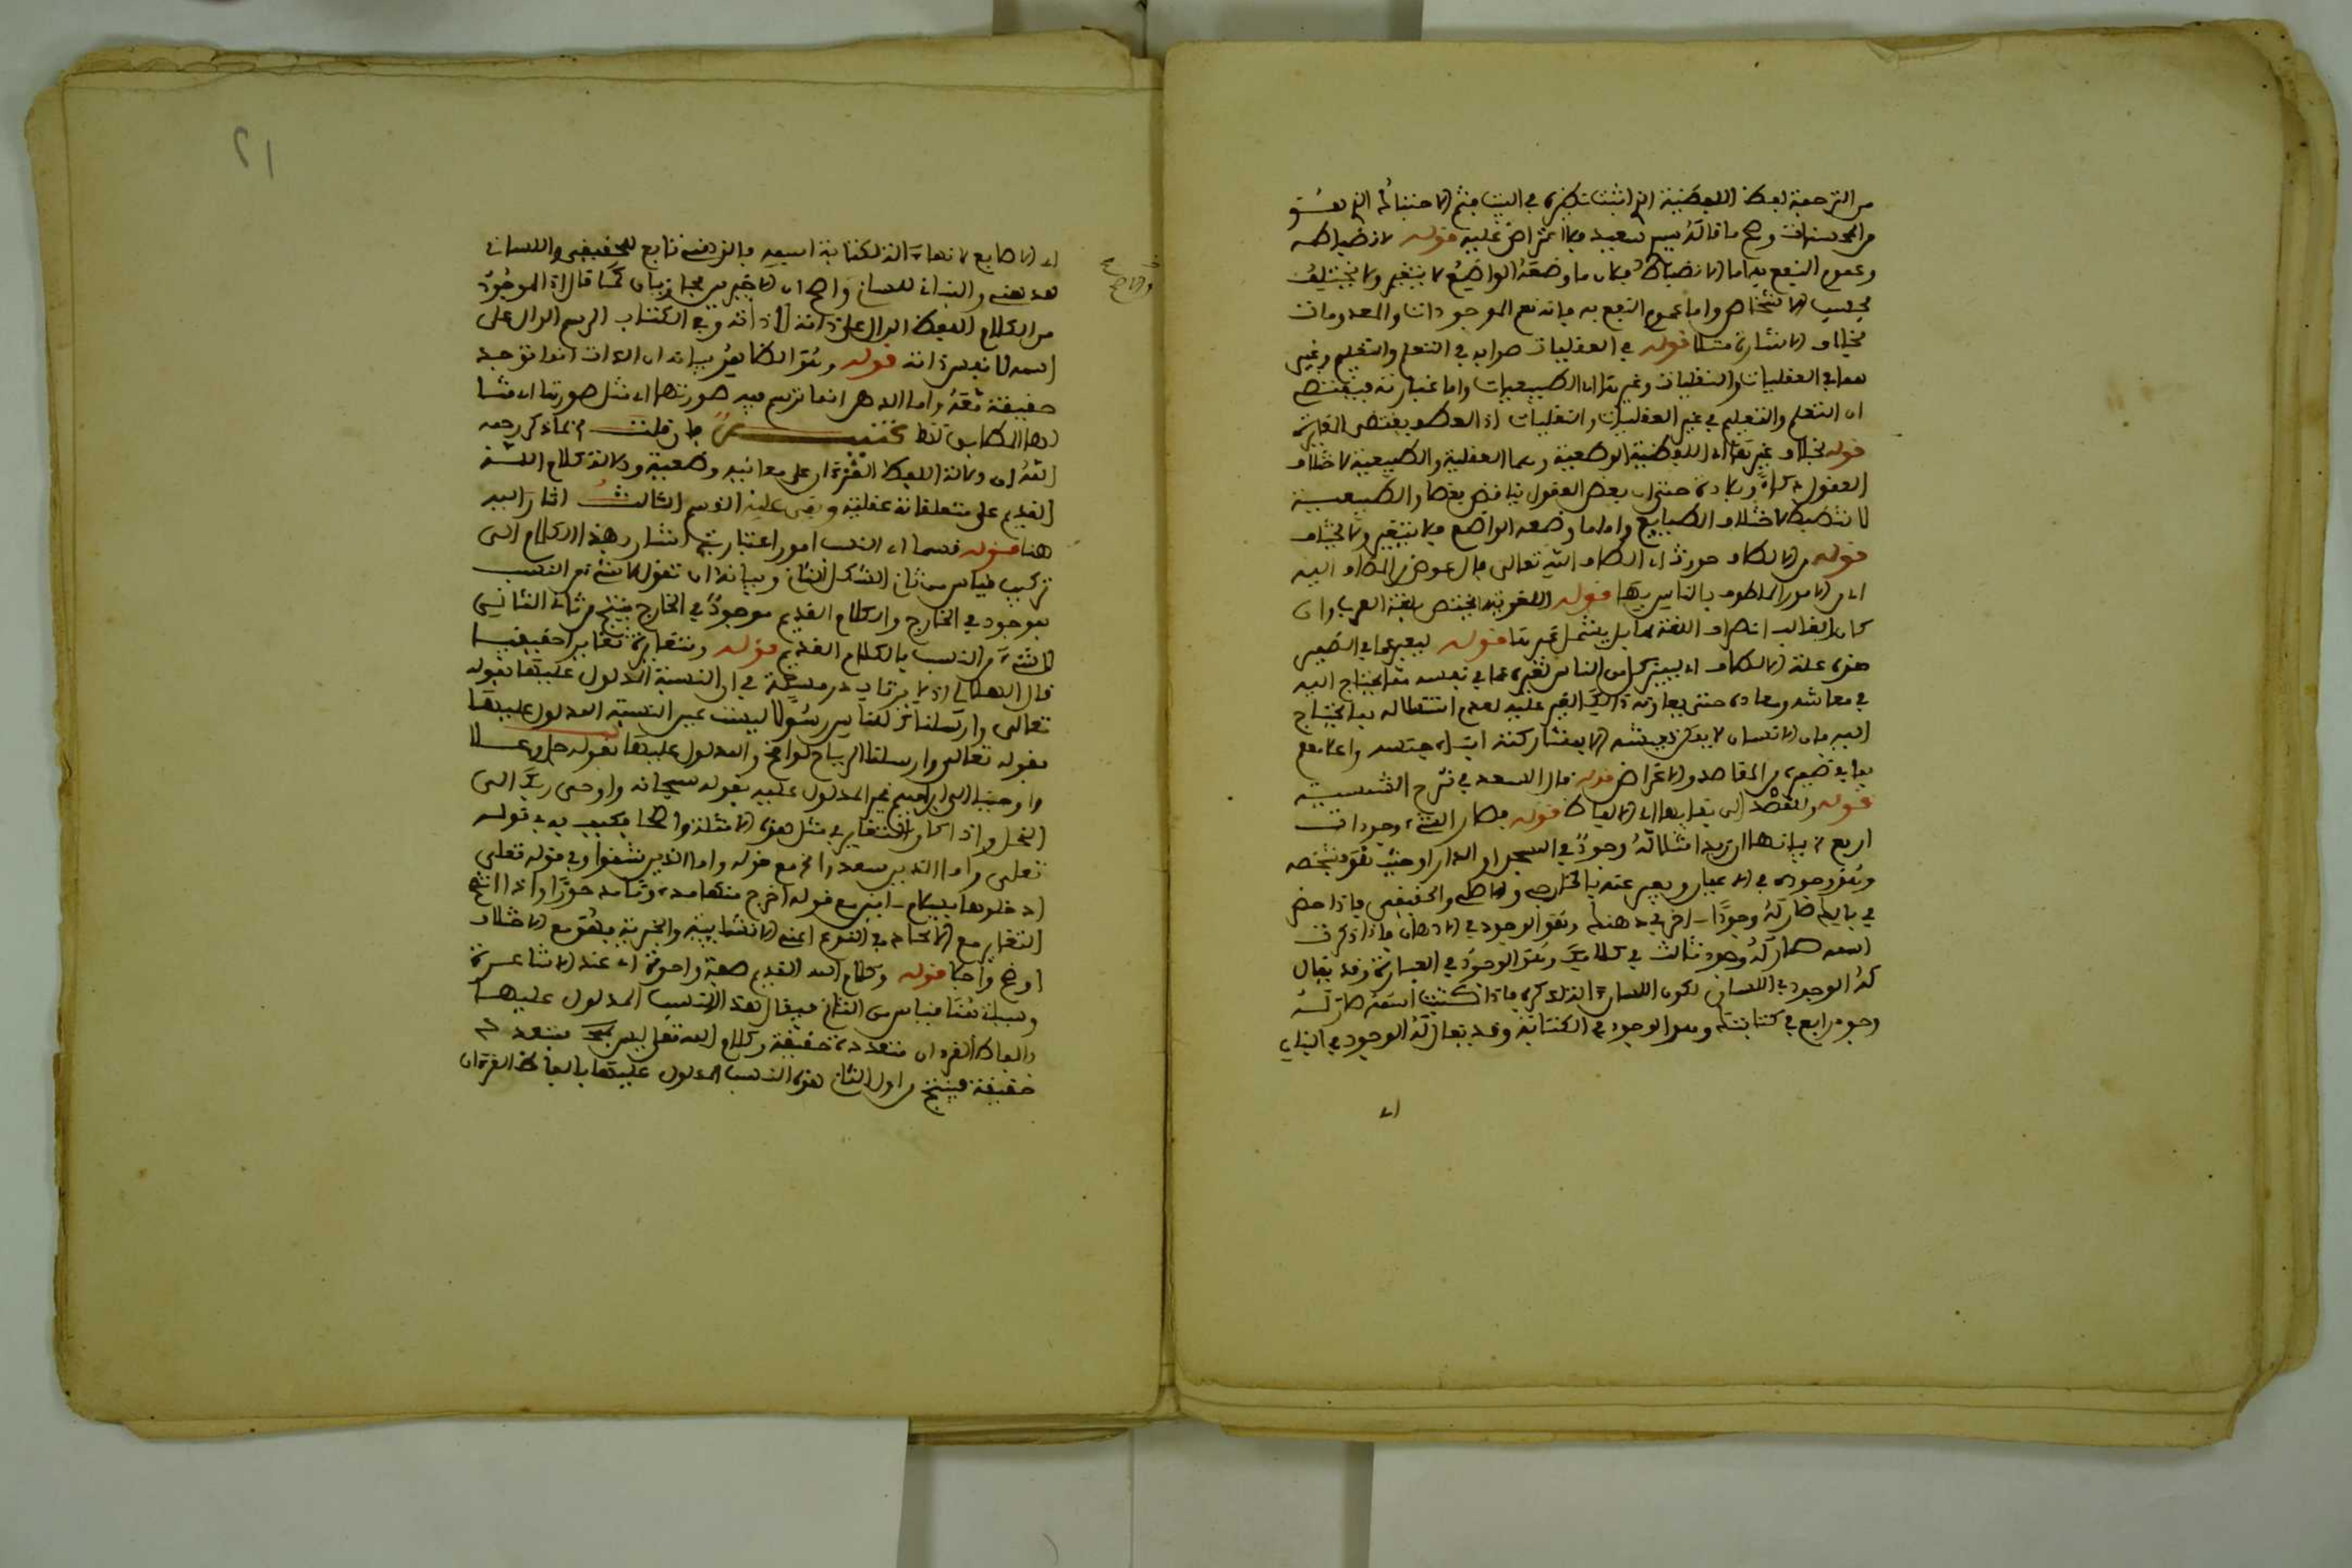 من الترجمة لفظ اللفظية اثبتت في البيت
من المحسنات وهو ما قاله سعيد فلا اعتراض عليه قوله لانضباطه
وعموم النفع به اما الانضباط فلان ما وضعه الواضع لا يتغير ولا يختلف
بحسب الاشخاص واما عموم النفع به فانه يعم الموجودات والمعدومات
بخلاف الاشارة مثلا قوله في العقليات صوابه في التعلم والتعليم وغير
العقليات والنقليات وغيرها الطبيعيات واما عبارته فتقتضي
ان التعلم والتعليم في غير العقليات والنقليات اذ العطف يقتضي المغايرة
قوله بخلاف غيرها اي اللفظية الوضعية وهما العقلية والطبيعية لاختلاف
العقول حتى ان بعض العقول يناقض بعضا والطبيعية
لا تنضبط لاختلاف الطبايع واما ما وضعه الواضع فلا يتغير ولا يختلف
قوله من الالطاف اي الطاف الله تعالى
اي من الامور الملطوف بالناس بها قوله اللغوية لا يختص بلغة العرب وان
كان الغالب انصراف اللغة لها بل يشمل غيرها قوله ليعبر عما في الضمير
هذه علة الالطاف اي ليعبر كل من الناس لغيره عما في نفسه مما يحتاج اليه
في معاشه ومعاده حتى يعاونه ذلك الغير عليه لعدم استقلاله بما يحتاج
اليه فان الانسان لا يمكن تعيشه الا بمشاركته ابناء جنسه واعلامهم
بما في ضميره من المقاصد والاغراض قوله قال السعد في شرح الشمسية
قوله والقصد الى الالفاظ قوله فصار للشيء وجودات
اربع بيانها ان زيدا مثلا له وجود في السجد او الدار او حيث هو شخصه
وهو وجوده في الاعيان ويعبر عنه بالخارجي والاصلي والحقيقي فاذا حضر
في بالك صار له وجودا اخر في ذهنك وهو الوجود في الاذهان فاذا ذكرت
اسمه صار له وجود ثالث في كلامك وهو الوجود في العبارة وقد يقال
له الوجود في اللسان لكون اللسان الة لذكره فاذا كتبت اسمه صار له
وجود رابع في كتابتك وهو الوجود في الكتابة وقد يقال له الوجود في البنان
اي
٢١
اي الاصابع لانها الة الكتابة اسمه فالذهني تابع للحقيقي واللساني
للذهني والبناني للساني واضح ان الاخيرين مجازيان كما قال اذ الموجود
من الكلام اللفظ الدال على ذاته لا ذاته وفي الكتاب الرسم الدال على
اسمه لا نفس ذاته قوله وهو الظاهر بيانه ان الذات انما توجد
حقيقة ثمة واما الذهن انما ترسم فيه صورتها اي مثل صورتها اي مثالها
المطابق لها فان قلت ما ذكر رحمه
الله ان دلالة اللفظ القرءان على معانيه وضعية ودلالة كلام الله
القديم على متعلقاته عقلية وبقي عليه القسم الثالث اشار اليه
هنا قوله قسما اي النسب امور اعتبارية اشار بهذا الكلام الى
تركيب قياس من ثاني الشكل الثاني وبيانه ان تقول لا شيء من النسب
بموجود في الخارج والكلام القديم موجود في الخارج ينتج من ثاني الثاني
لا شيء من النسب بالكلام القديم قوله ومتغايرة تغايرا حقيقيا
قال اذ لا يرتاب في ان النسبة المدلول عليها بقوله
تعالى وارسلناك للناس رسولا ليست عين النسبة المدلول عليها
بقوله تعالى وارسلنا الرياح لواقح والمدلول عليها بقوله جل وعلا
واوحينا الى ابراهيم غير المدلول عليه بقوله سبحانه واوحى ربك الى
النحل واذا كان التغاير في مثل هذه الامثلة واضحا فكيف به في قوله
تعالى واما الذين سعدوا مع قوله واما الذين شقوا وفي قوله تعالى
ادخلوها بسلام امنين مع قوله اخرج منها مذءوما مدحورا واذا اتضح
التغاير مع الاتحاد في النوع اعني الانشائية والخبرية فهو مع الاختلاف
اوضح واحق قوله وكلام الله القديم صفة واحدة اي عند الاشاعرة
وهنا قياس من الثاني فيقال هذه النسب المدلول عليها
بالفاظ القرءان متعددة حقيقة وكلام الله تعالى ليس بمتعدد
حقيقة فينتج من اول الثاني هذه النسب المدلول عليها بالفاظ القرءان